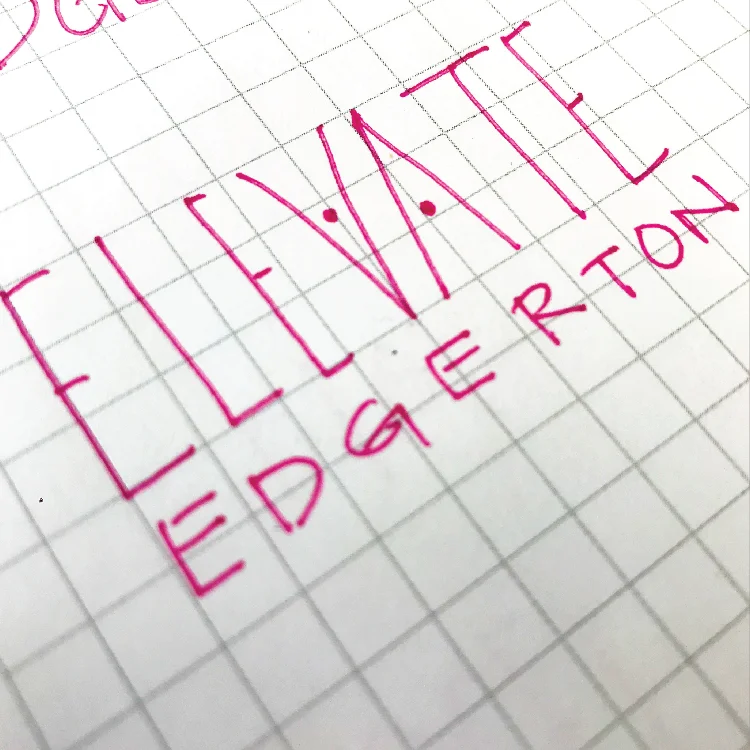 ELEVATE
EDGERTON